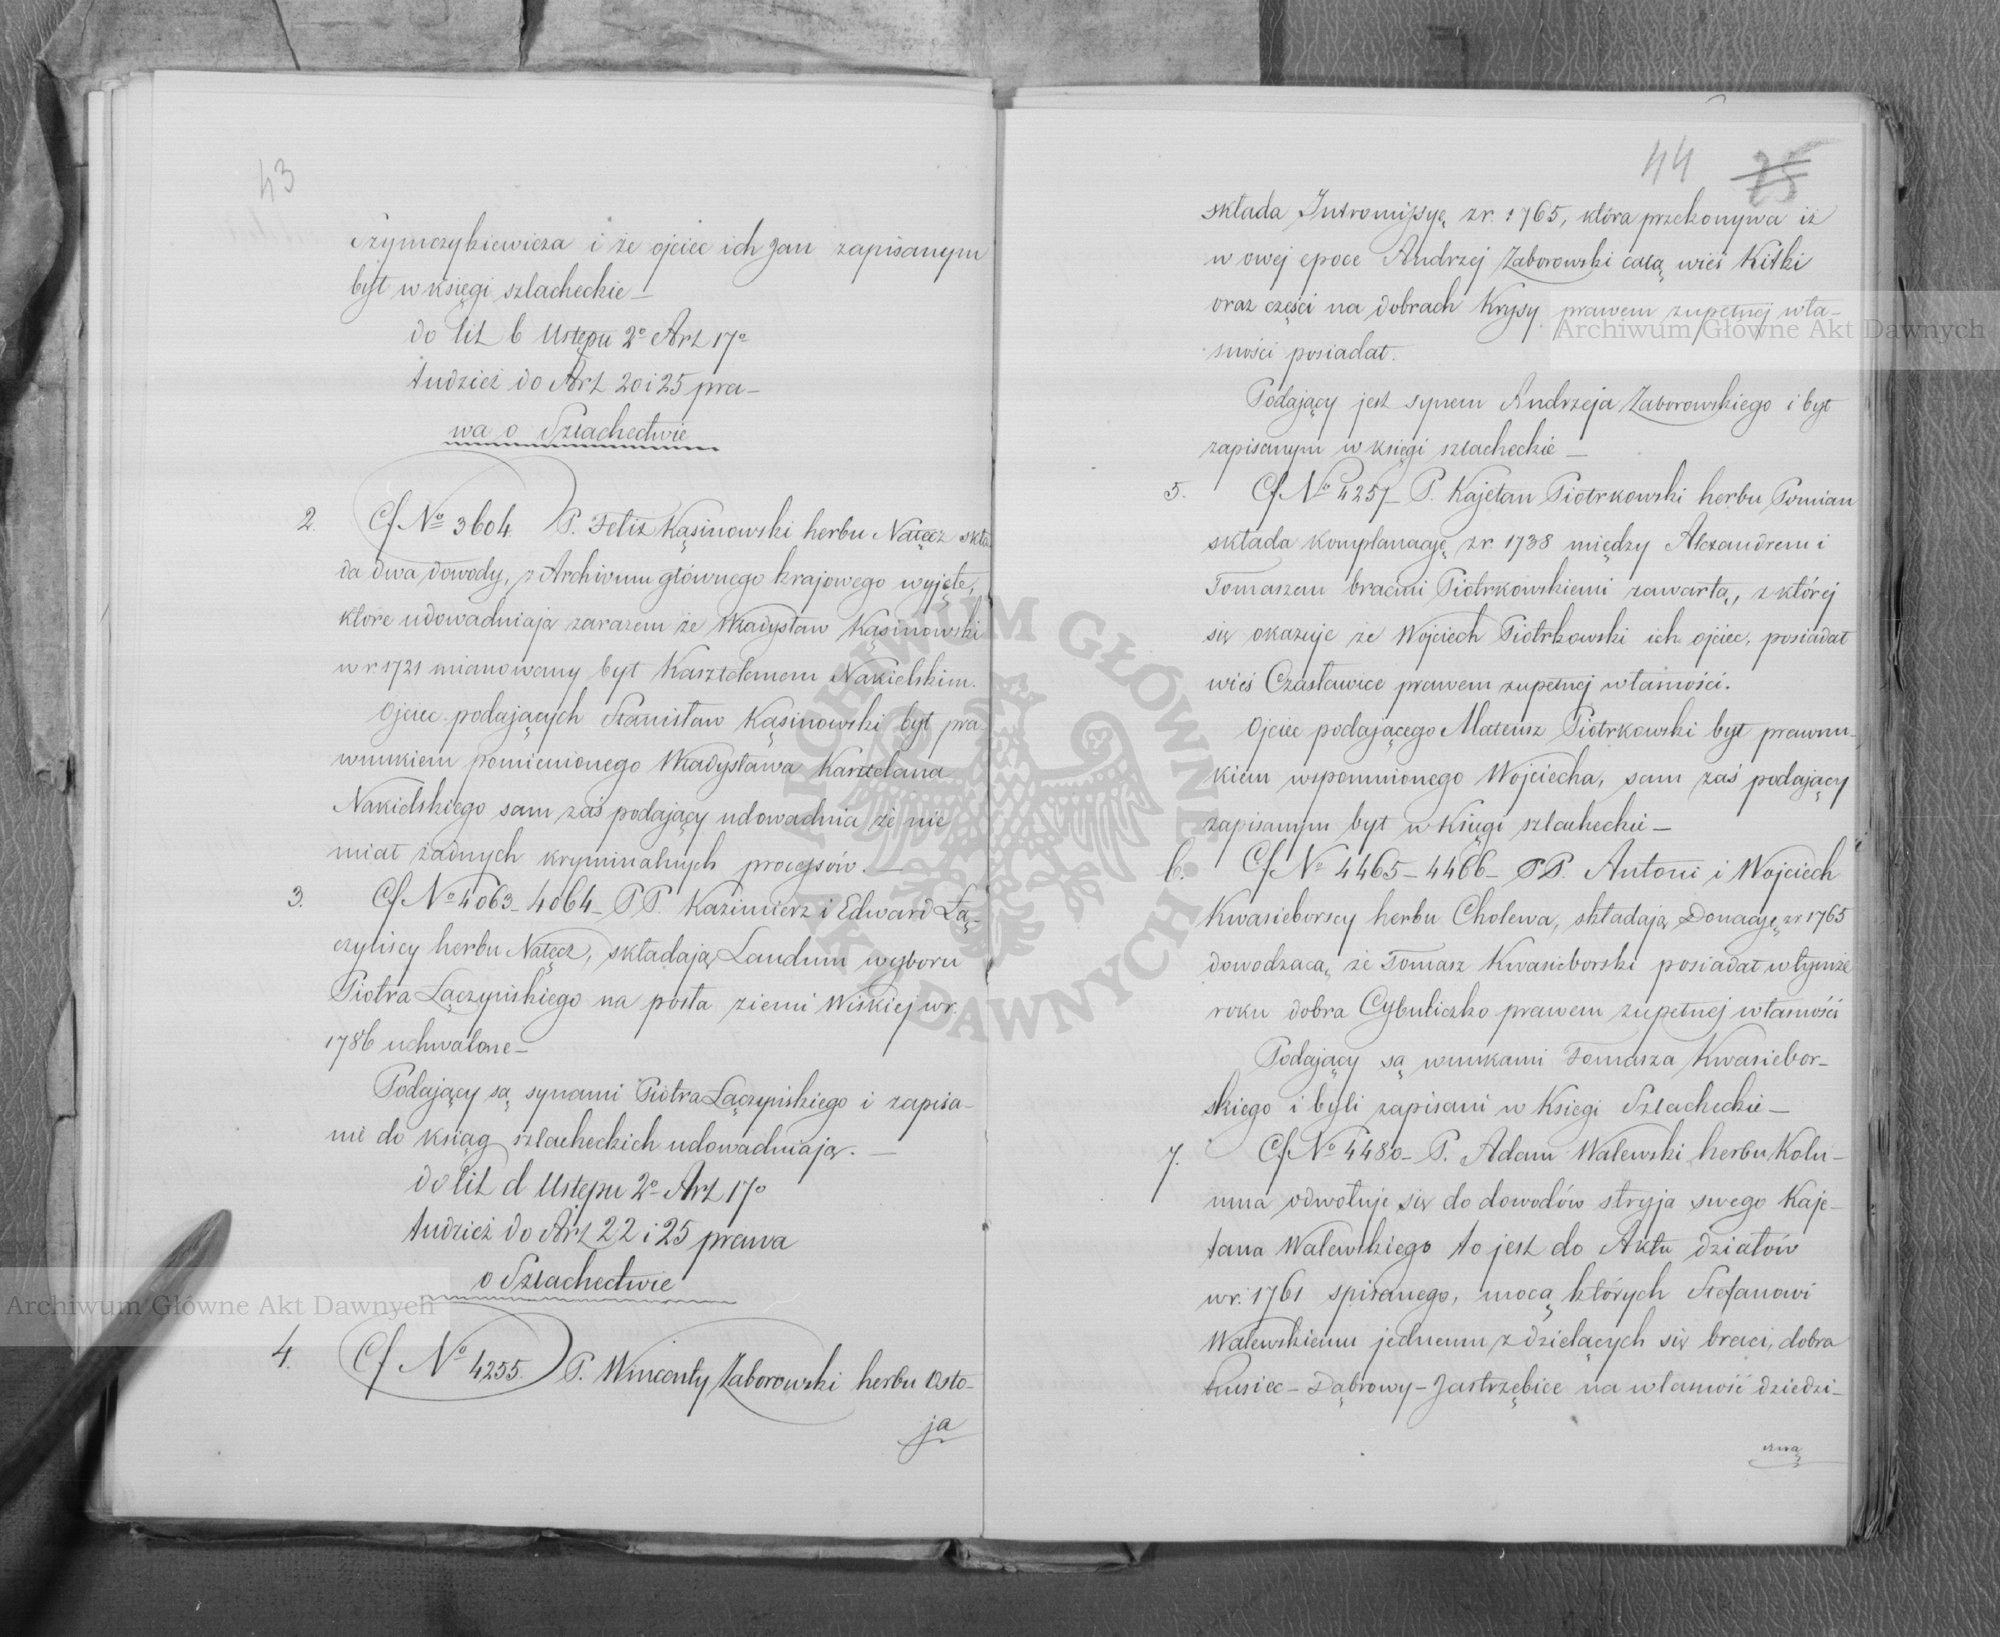 43
Szymczykiewicza i że ojciec ich Jan zapisanym
był w księgi szlacheckie —
do lit b Ustępu 2º Art 17º
tudzież do Art 20 i 25 pra-
wa o Szlachectwie
2. Cf Nº 3604. P. Felix Kąsinowski herbu Nałęcz skła-
da dwa dowody, z Archivum głównego krajowego wyjęte,
które udowadniają zarazem że Władysław Kąsinowski
w r. 1721 mianowany był Kasztelanem Nakielskim.
Ojciec podających Stanisław Kąsinowski był pra-
wnukiem pomienionego Władysława Kasztelana
Nakielskiego sam zaś podający udowadnia że nie
miał żadnych kryminalnych processów. —
3. Cf Nº 4063 - 4064 - PP. Kazimierz i Edward Łą-
czyńscy herbu Nałęcz, składają Laudum wyboru
Piotra Łączyńskiego na posła ziemi Wiskiej w r.
1786 uchwalone —
Podający są synami Piotra Łączyńskiego i zapisa-
nie do ksiąg szlacheckich udowadniają. —
do lit d Ustępu 2º Art 17º
tudzież do Art 22 i 25 prawa
o Szlachectwie
4. Cf Nº 4255. P. Wincenty Zaborowski herbu Osto-
ja
44 25
składa Intromissyę z r. 1765, która przekonywa iż
w owej epoce Andrzej Zaborowski całą wieś Kitki
oraz części na dobrach Krysy prawem zupełnej wła-
sności posiadał.
Podający jest synem Andrzeja Zaborowskiego i był
zapisanym w księgi szlacheckie —
5. Cf Nº 4257 - P. Kajetan Piotrkowski herbu Pomian
składa komplanacyę z r. 1738 między Alexandrem i
Tomaszem bracmi Piotrkowskiemi zawartą, z której
się okazuje że Wojciech Piotrkowski ich ojciec, posiadał
wieś Czasławice prawem zupełnej własności.
Ojciec podającego Mateusz Piotrkowski był prawnu-
kiem wspomnionego Wojciecha, sam zaś podający
zapisanym był w Księgi szlacheckie —
6. Cf Nº 4465 - 4466 - PP. Antoni i Wojciech
Kwasieborscy herbu Cholewa, składają Donacyę z r. 1765
dowodzacą, że Tomasz Kwasieborski posiadał w tymże
roku dobra Cybuliczko prawem zupełnej własności
Podający są wnukami Tomasza Kwasiebor-
skiego i byli zapisani w Księgi Szlacheckie —
7. Cf Nº 4480 - P. Adam Walewski herbu Kolu-
mna odwołuje się do dowodów stryja swego Kaje-
tana Walewskiego to jest do Aktu działów
w r. 1761 spisanego, mocą których Stefanowi
Walewskiemu jednemu z dzielących się braci, dobra
Rusiec - Dąbrowy - Jastrzębice na własność dziedzi-
czną
Archiwum Główne Akt Dawnych
Archiwum Główne Akt Dawnych
ARCHIWUM GŁÓWNE AKT DAWNYCH